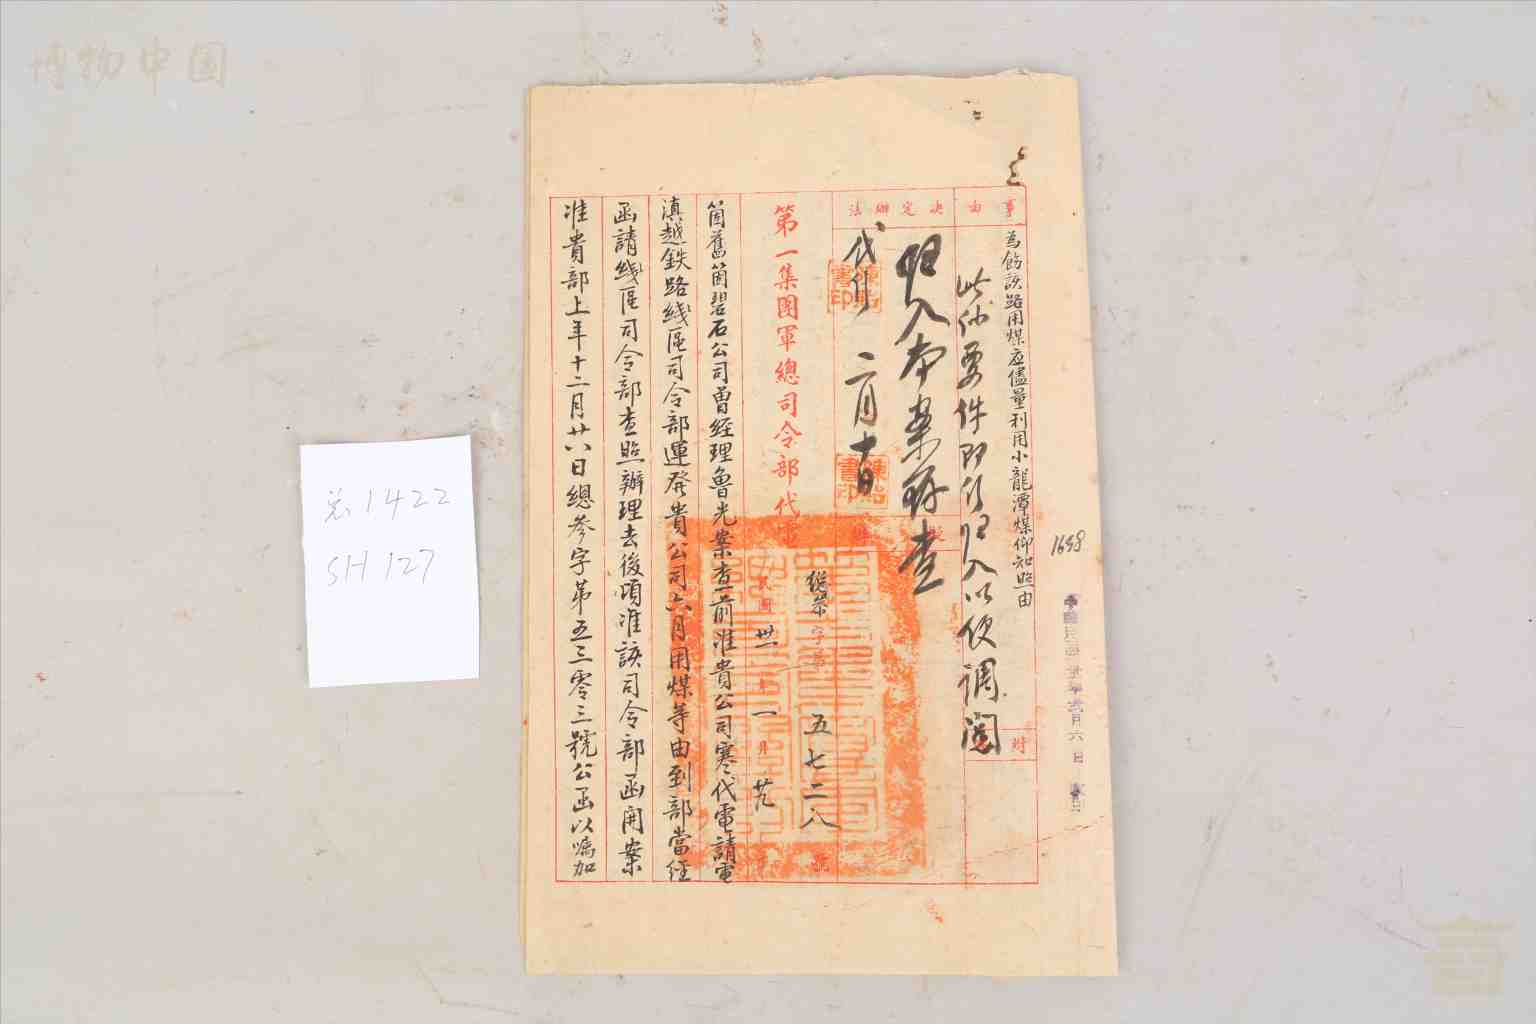 博物中国
总1422
SH127
事由
為飭該路用煤应儘量利用小龍潭煤仰知照由
此係要件即行归入以便调阅
决定辦法
归入本案存查
二月十日
第一集團軍總司令部代電
字第五七二八號
民國卅一年一月
箇舊箇碧石公司曾經理魯光案查前准貴公司寒代電請電
滇越鉄路綫區司令部運發貴公司六月用煤等由到部當經
函請綫區司令部查照辦理去後頃准該司令部函開案
准貴部上年十二月廿八日總參字第五三零三號公函以囑加
1698